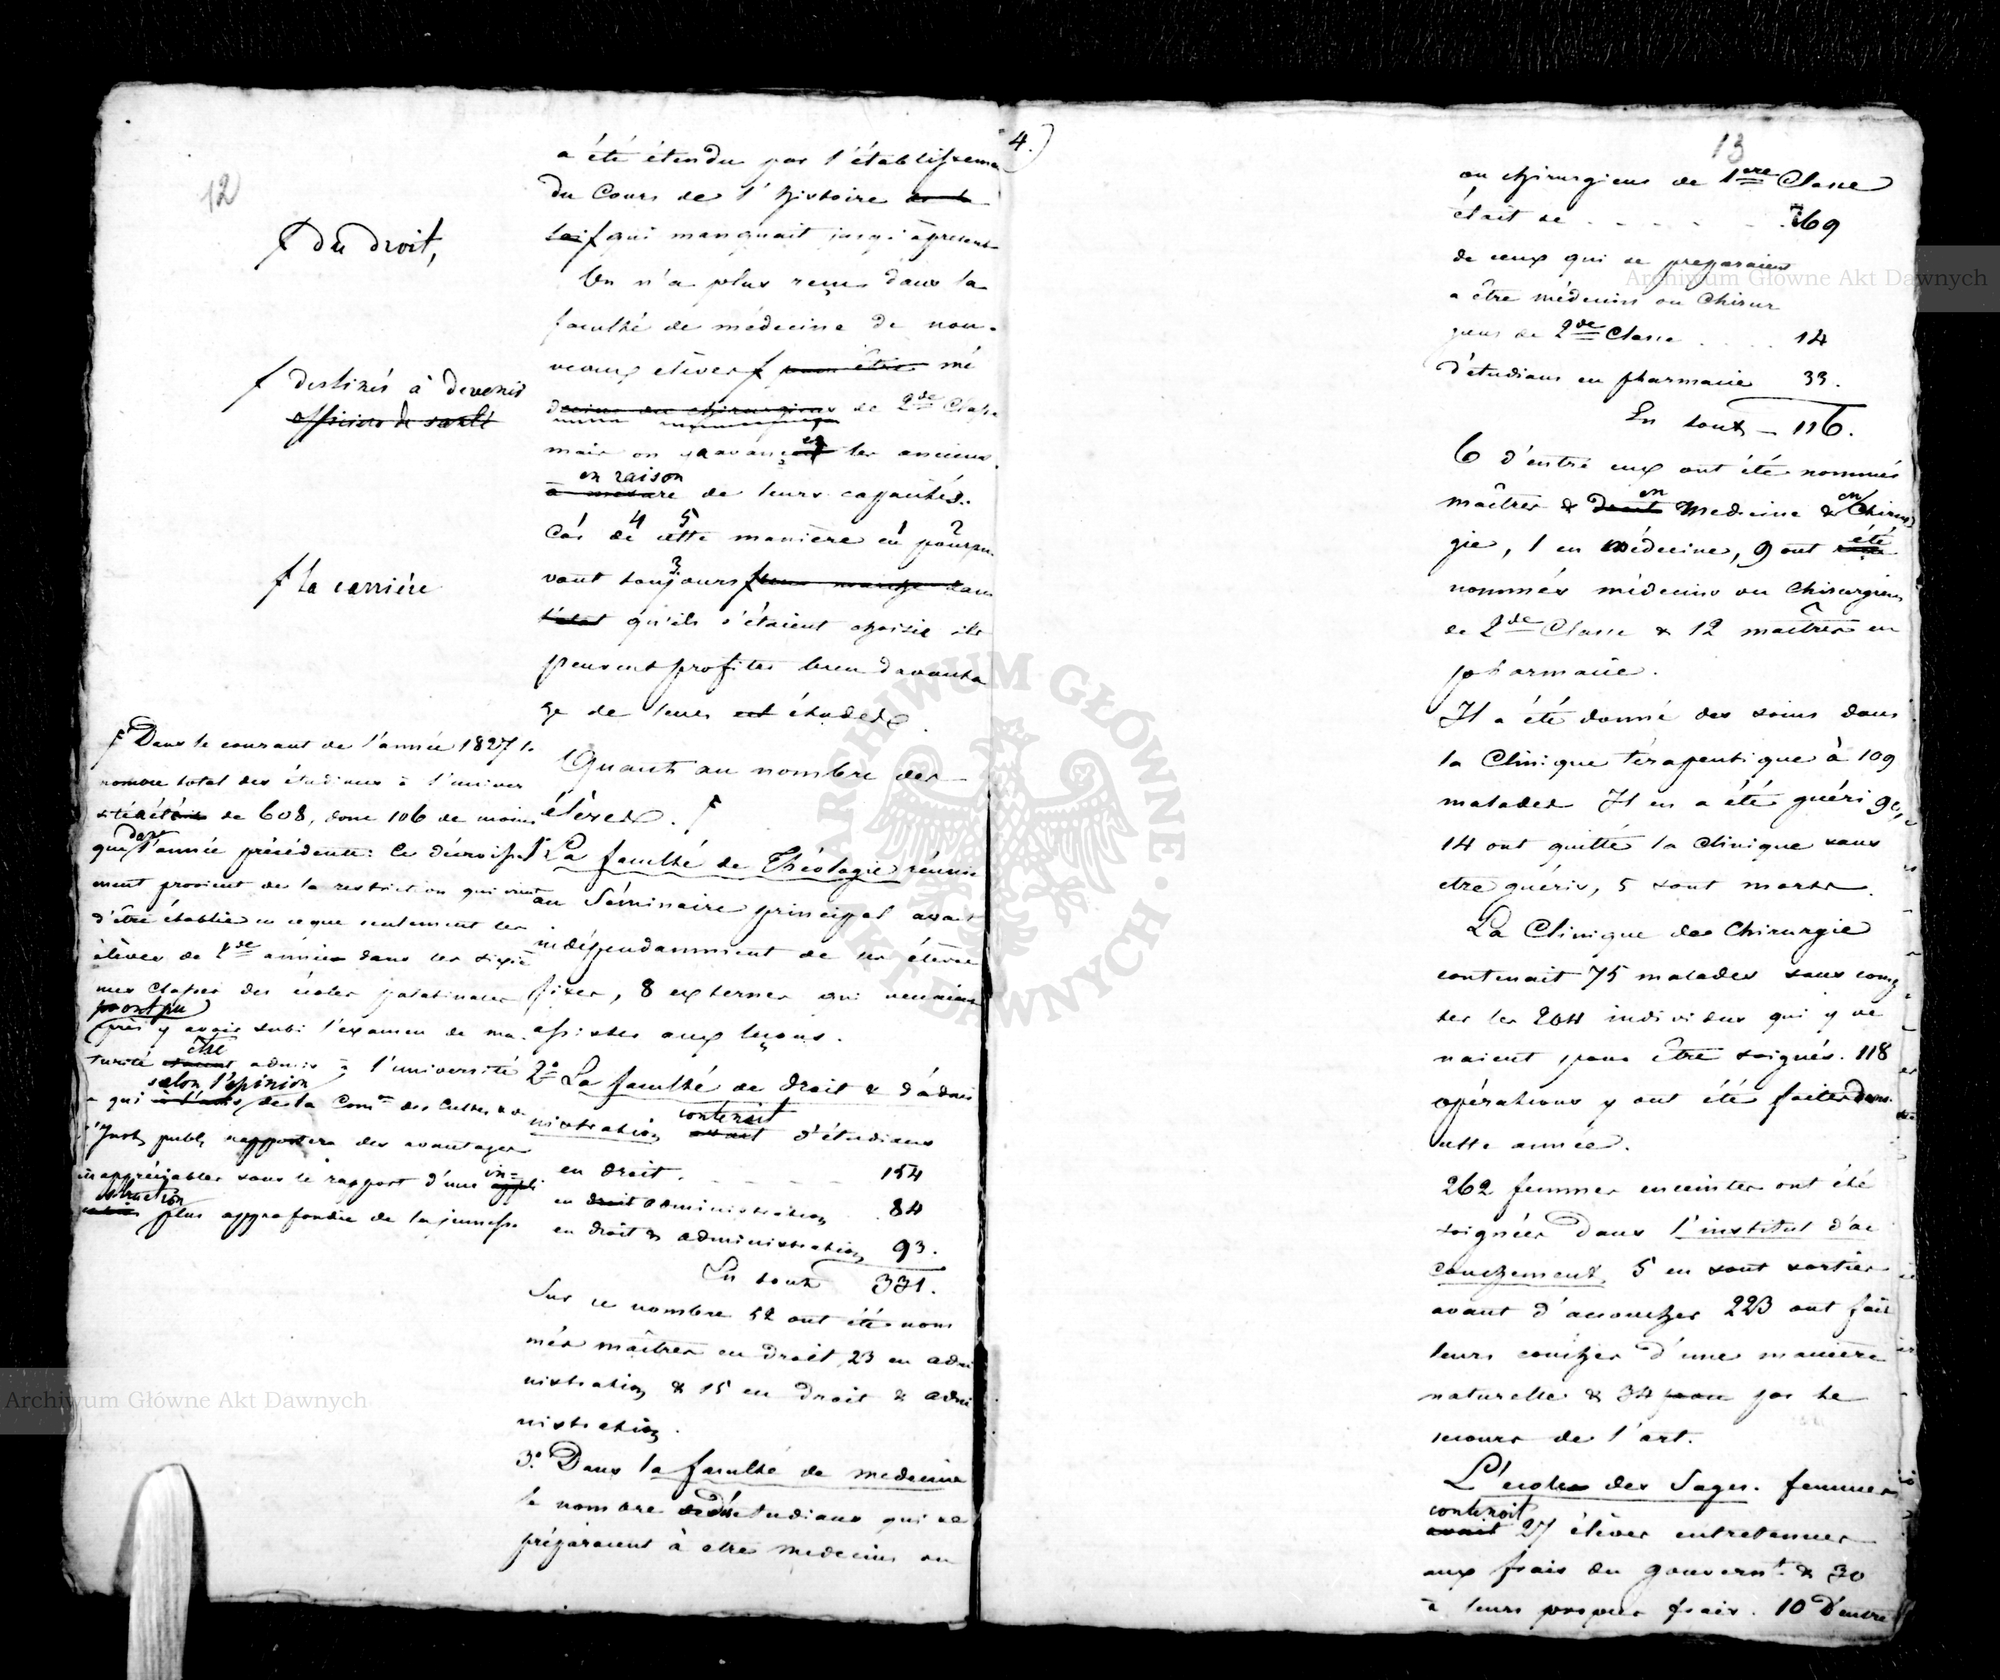 12
ƒ du droit,
ƒ destinés à devenir
officiers de santé
ƒ la carrière
ƒ Dans le courant de l'année 1827 le
nombre total des étudians à l'univer
sité était de 608, donc 106 de moins
que dans l'année précédente: Ce décroisse
ment provient de la restriction qui vient
d'être établie en ce que seulement les
élèves de 2de année dans les sixiè
mes classes des écoles palatinales
ont pu
après y avoir subi l'examen de ma-
turité être admis à l'université
selon l'opinion
à qui de la Comon des Cultes & de
l'Inst. publ. rapportera des avantages
inappréciables sous le rapport d'une in=
struction plus approfondie de la jeunesse
4.)
a été étendu par l'établisseme
du Cours de l'histoire de la
qui manquait jusqu'àprésent
On n'a plus reçu dans la
faculté de médecine de nou-
veaux elèves ƒ pour être mé
decins ou chirurgiens de 2de Classe
mais on a avancé les anciens
en raison
à mesure de leurs capacités.
Car de cette manière en poursui
4 5 2
3
vant toujours dans
l'état qu'ils s'étaient choisie ils
peuvent profiter bien davanta
ge de leurs études.
Quant au nombre des
élèves. ƒ
1° La faculté de Théologie réunie
au Séminaire principal avait
indépendamment de ses élèves
fixes, 8 externes qui venaient
assister aux leçons.
2° La faculté de droit & d'admi
nistration contenait avait d'étudians
en droit. - - - - - 154
en droit administration . . 84
en droit & administration 93.
En tout 331.
Sur ce nombre 52 ont été nom
més maîtres en droit, 23 en admi
nistration & 15 en droit & admi
nistration.
3° Dans la faculté de médecine
le nombre d'étudians qui se
préparaient à etre medecins ou
13
ou chirurgiens de 1ere Classe
était de - - - - - - 69
de ceux qui se preparaient
a être médecins ou Chirur
giens de 2de Classe . . . . 14
d'étudians en pharmacie 33.
En tout – 116.
6 d'entre eux ont été nommés
maîtres en droit Medecine & en Chirur
gie, 1 en médecine, 9 ont été
nommés médecins ou Chirurgiens
de 2de Classe & 12 maîtres en
pharmacie.
Il a été donné des soins dans
la Clinique térapeutique à 109
malades Il en a été guéri 90,
14 ont quitté la Clinique sans
etre guéris, 5 sont morts.
La Clinique de Chirurgie
contenait 75 malades sans comp
ter les 204 individus qui y ve
naient pour être soignés. 118
opérations y ont été faites dans
cette année.
262 femmes enceintes ont été
soignées dans l'institut d'ac
couchement, 5 en sont sorties
avant d'accoucher 223 ont fait
leurs couches d'une manière
naturelle & 34 par le
secours de l'art.
L'école des Sages-femmes
contenoit
avait 27 élèves entretenues
aux frais du gouvernt & 30
à leurs propres frais. 10 D'entre
ARCHIWUM GŁÓWNE AKT DAWNYCH
Archiwum Główne Akt Dawnych
Archiwum Główne Akt Dawnych